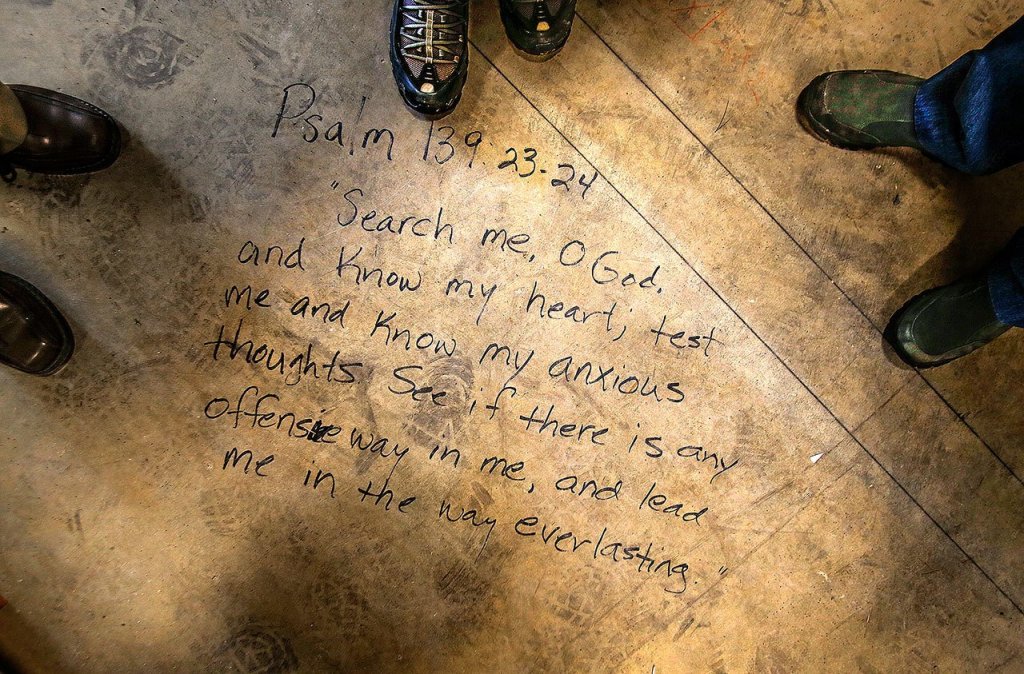 Psalm 139:23-24
"Search me, O God,
and know my heart; test
me and know my anxious
thoughts. See if there is any
offensive way in me, and lead
me in the way everlasting."